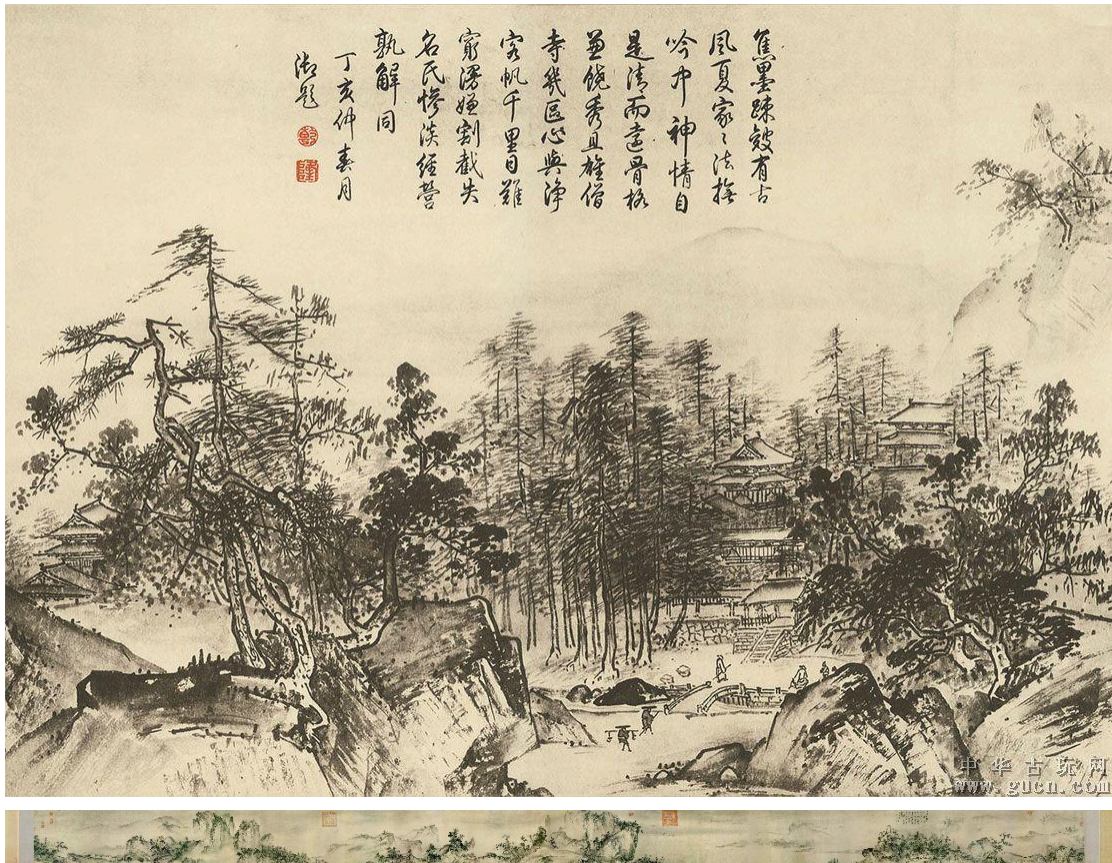 焦墨疎皴有古
風夏家〻法撫
吟中神情自
是清而遠骨格
兼饒秀且雄僧
寺幾區心與淨
客帆千里目難
窮漫嫌割截失
名氏慘淡經營
孰解同
丁亥仲春月
御題
乾
隆
中华古玩网
www.gucn.com